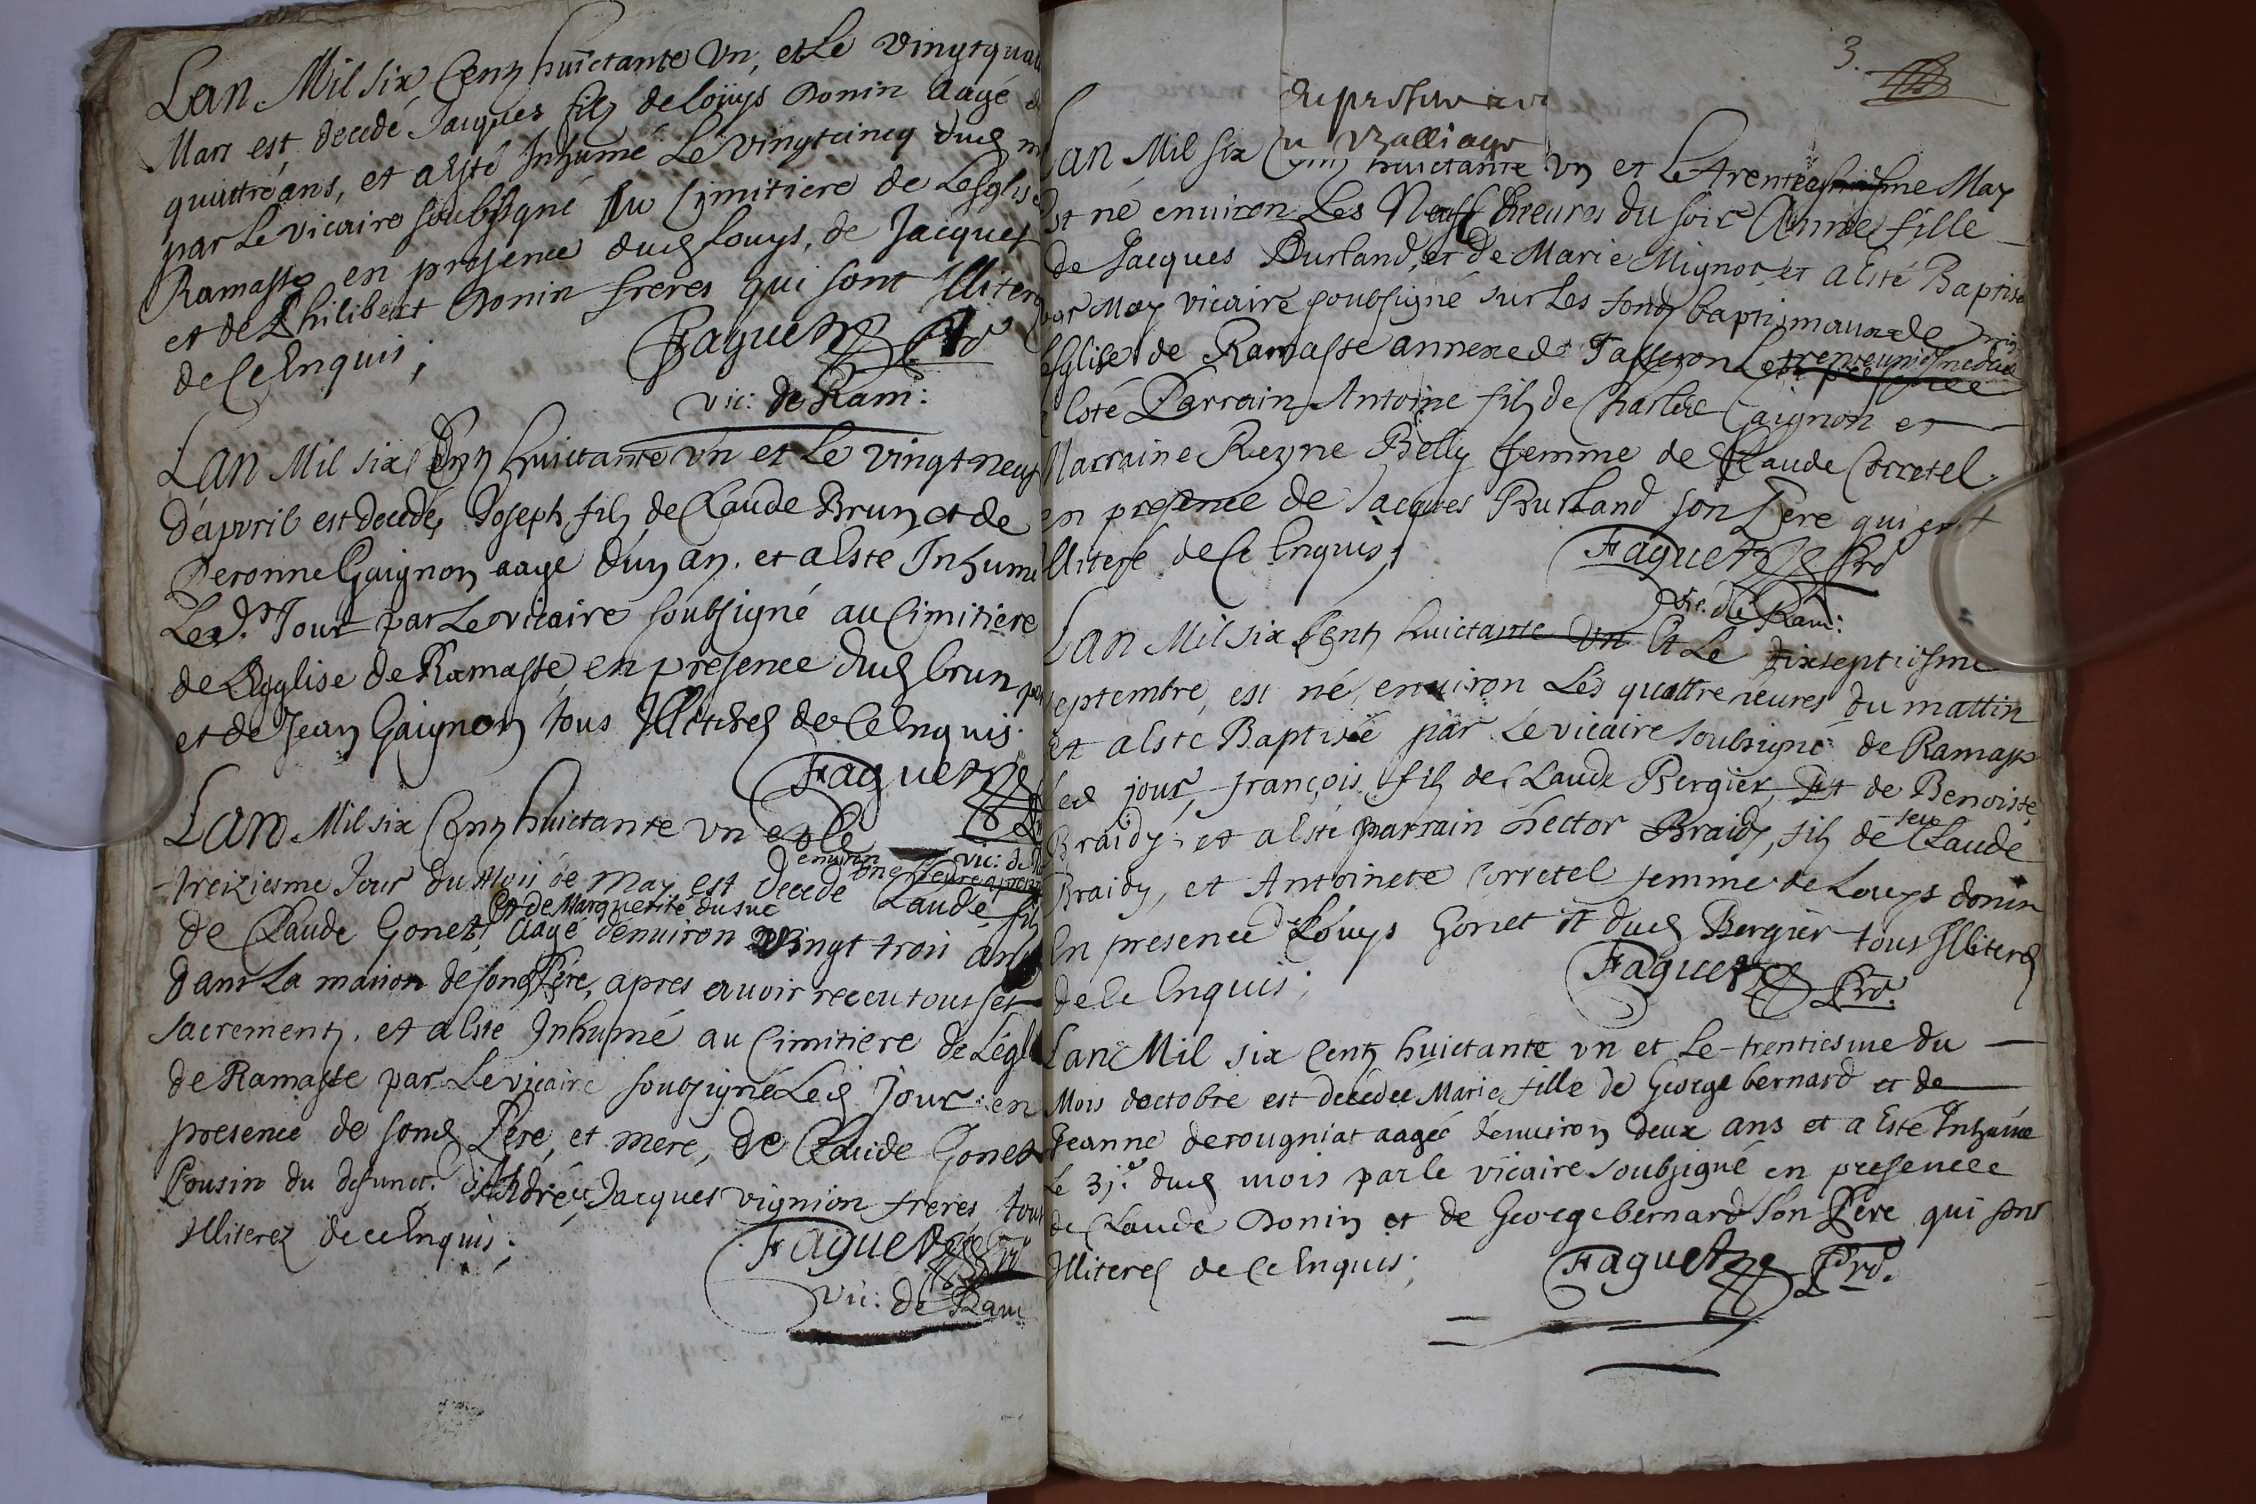 Lan Mil six Centz huictante Un, et Le vingtqua
Mars est decedé Jacques filz de Loüys Donin aagé
quattre ans, et a Esté Inhumé Le vingtcinq dud m
par Le vicaire soubsigné Au Cimitiere de LesGlise
Ramasse en presence dud Louys, de Jacques
et de Philibert Donin freres qui sont Illiterez
de Ce Enquis;
Faguet Prd
vic: de Ram:
Lan Mil six Centz huictante Un et Le vingt neuf
d'apvril est decedé Joseph filz de Claude Brun et de
Peronne Gaignon aagé d'un an. et a Esté Inhumé
Led. Jour par Le vicaire soubsigné au Cimitiere
de LEgglise de Ramasse en presence dud brun
et de Jean Gaignon tous Illiterez de Ce Enquis.
Faguet
vic: de
Lan Mil six Centz huictante Un et le
environ une heure apres
treiziesme Jour du Mois de May est decedé Claude filz
et de Marguerite du suc
de Claude Gonet, aagé d'environ vingt trois ans
dans La maison de sond Pere, apres avoir receu tout ses
sacrementz. et a Esté Inhumé au Cimitiere de Légli
de Ramasse par Le vicaire soubsigné Led Jour en
presence de sond Pere, et mere, de Claude Gonet
Cousin du defunct. Jacques vignion freres tous
Illiterez de ce Enquis;
Faguet
vic: de Ram
3.
Balliage
Lan Mil six Centz huictante Un et Le trente May
est né environ Les Neuf heures du soir Anne fille
de Jacques Burland, et de Marie Mignot et a Esté Baptisé
par Moy vicaire soubsigné sur Les fondz baptismaux de
LesGlise de Ramasse annexe de Jasseron Le trenteuniesme dud
a Esté Parrain Antoine filz de Charle Gaignon et
Marraine Reyne Belly femme de Claude Corretel.
en presence de Jacques Burland son Pere qui est
Illiteré de Ce Enquis;
Faguet Prd
vic. de Ram:
Lan Mil six Centz huictante Un Et Le dixseptiesme
septembre, est né, environ Les quattre heures du mattin
et a Esté Baptisé par Le vicaire soubsigné de Ramasse
Led jour, François filz de Claude Bergier, Et de Benoiste
feu
Braidy, et a Esté parrain Hector Braidy, filz de Claude
Braidy, et Antoinete Corretel femme de Louys donin
En presence de Louys Gonet et dud Bergier tous Illiterez
de Ce Enquis;
Faguet Prd.
Lan Mil six Centz huictante un et Le trentiesme du
Mois doctobre est decedee Marie fille de George bernard et de
Jeanne derougniat aagée denviron deux ans et a Esté Inhumée
Le 31.e dud mois par le vicaire soubsigné en presence
de Claude Donin et de George bernard son Pere qui sont
Illiterez de Ce Enquis;
Faguet Prd.